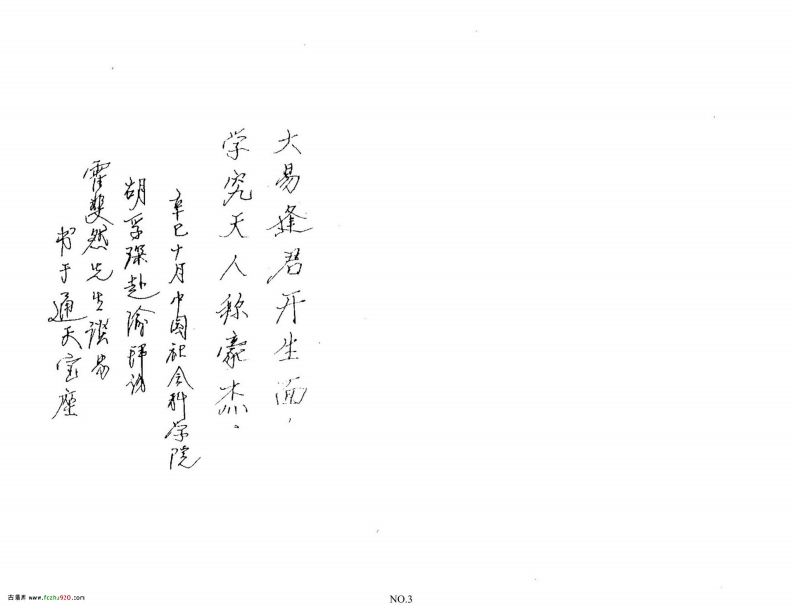 大易逢君开生面，
学究天人称豪杰。
辛巳十月中国社会科学院
胡孚琛赴渝拜访
霍斐然先生谈易
书于通天宝座
古籍库 www.fczhu920.com
NO.3